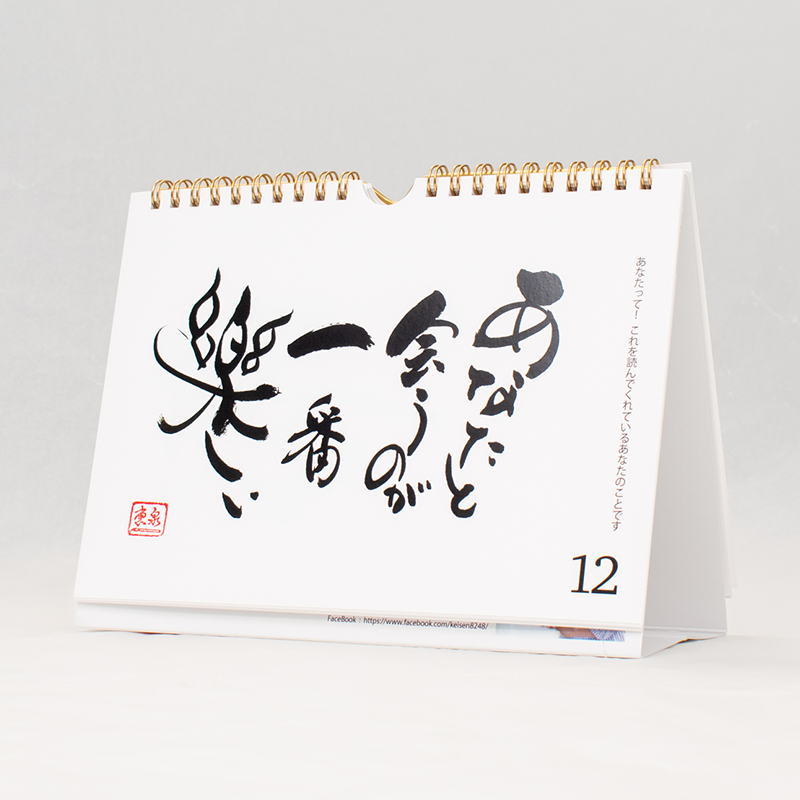 あなたって！これを読んでくれているあなたのことです
あなたと
会うのが
一番
楽しい
12
FaceBook : https://www.facebook.com/keisen8248/